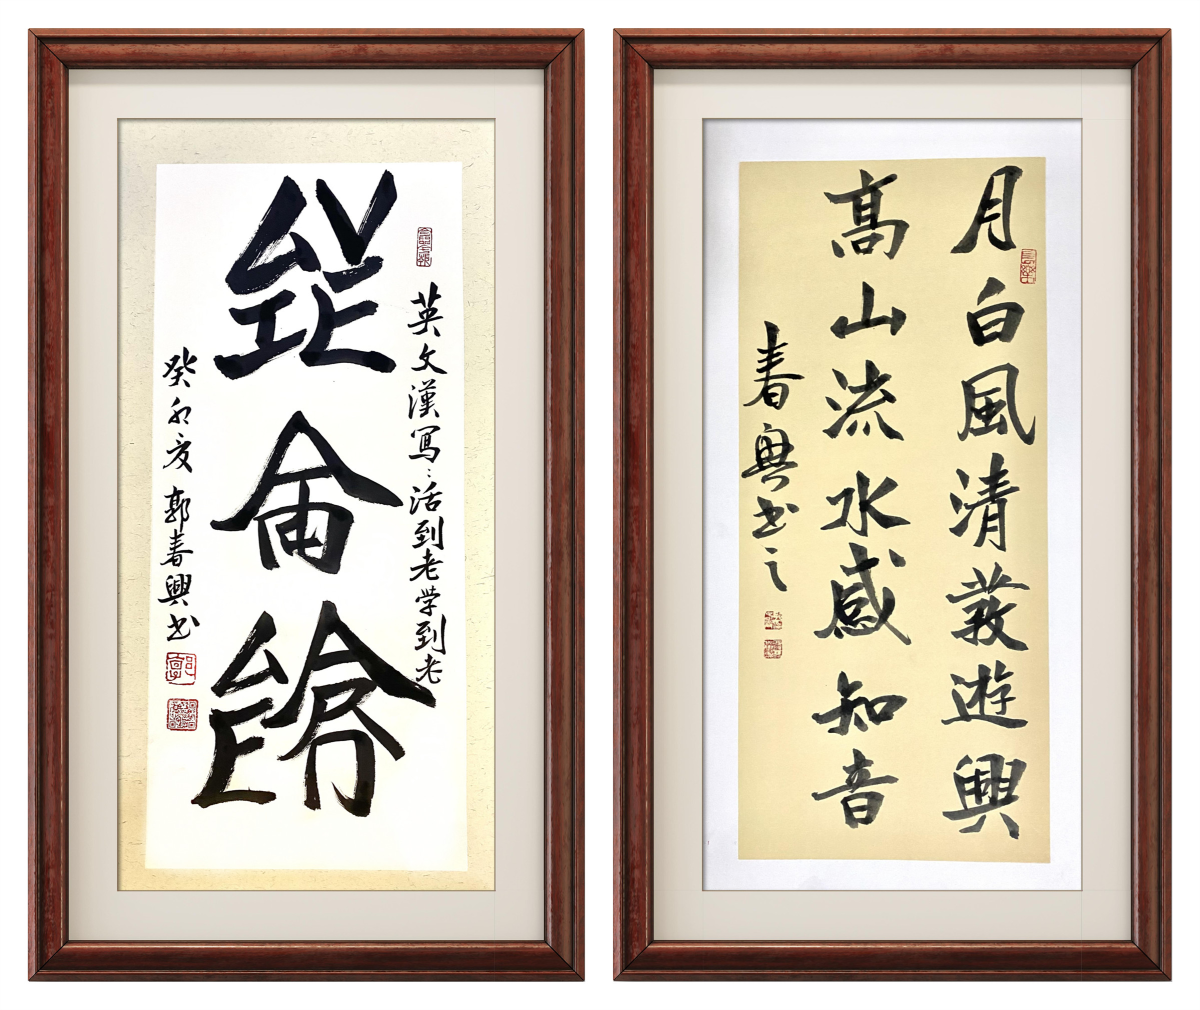 英文漢写：活到老学到老
LIVE
AND
LEARN
癸卯夏 郭春興书
月白風清發遊興
高山流水感知音
春興书之